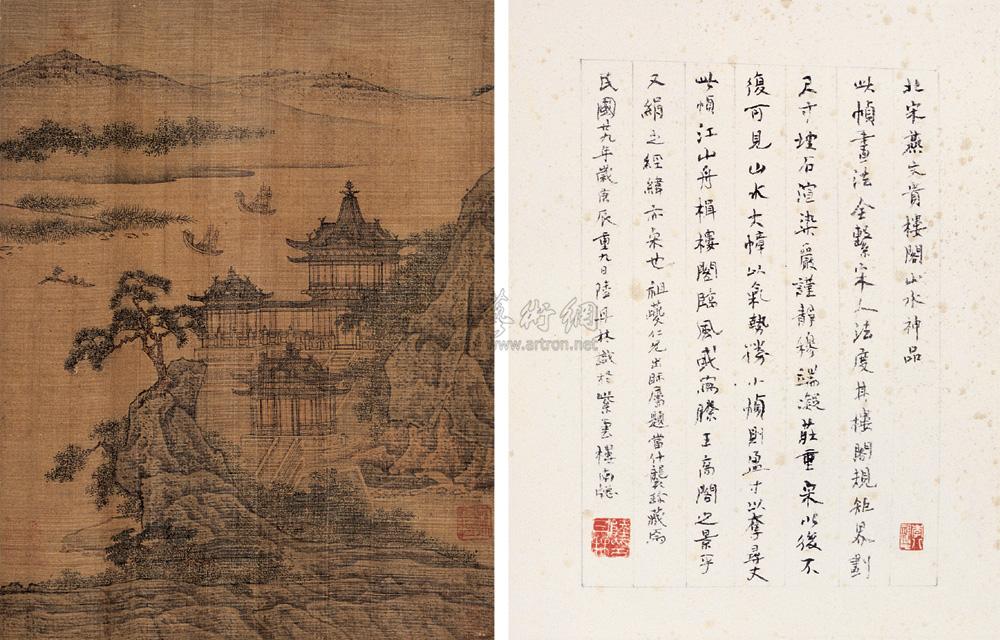 北宋燕文貴樓閣山水神品
此幀畫法全繫宋人法度其樓閣規矩界劃
尺寸坡石渲染嚴謹靜穆端凝莊重宋以後不
復可見山水大幛以氣勢勝小幀則盈寸以奪尋丈
此幀江山舟楫樓閣臨風或寫滕王高閣之景乎
又絹之經緯亦宋也祖夔仁兄出眎屬題當什襲珍藏焉
民國廿九年歲庚辰重九日陸丹林識於紫雲樓南牕
藝術網
www.artron.net